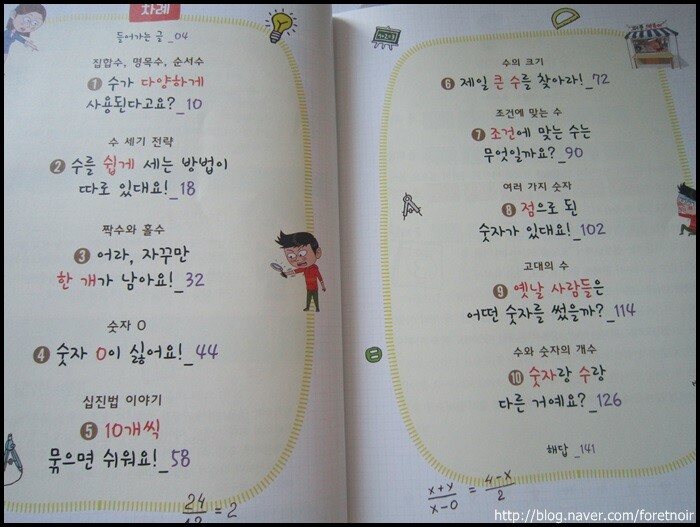 차례
들어가는 글 _04
집합수, 명목수, 순서수
1 수가 다양하게
사용된다고요?_10
수 세기 전략
2 수를 쉽게 세는 방법이
따로 있대요!_18
짝수와 홀수
3 어라, 자꾸만
한 개가 남아요!_32
숫자 0
4 숫자 0이 싫어요!_44
십진법 이야기
5 10개씩
묶으면 쉬워요!_58
24
= 2
수의 크기
6 제일 큰 수를 찾아라!_72
조건에 맞는 수
7 조건에 맞는 수는
무엇일까요?_90
여러 가지 숫자
8 점으로 된
숫자가 있대요!_102
고대의 수
9 옛날 사람들은
어떤 숫자를 썼을까?_114
수와 숫자의 개수
10 숫자랑 수랑
다른 거예요?_126
해답 _141
x+y / x-0 = 4-x / 2
http://blog.naver.com/foretnoir